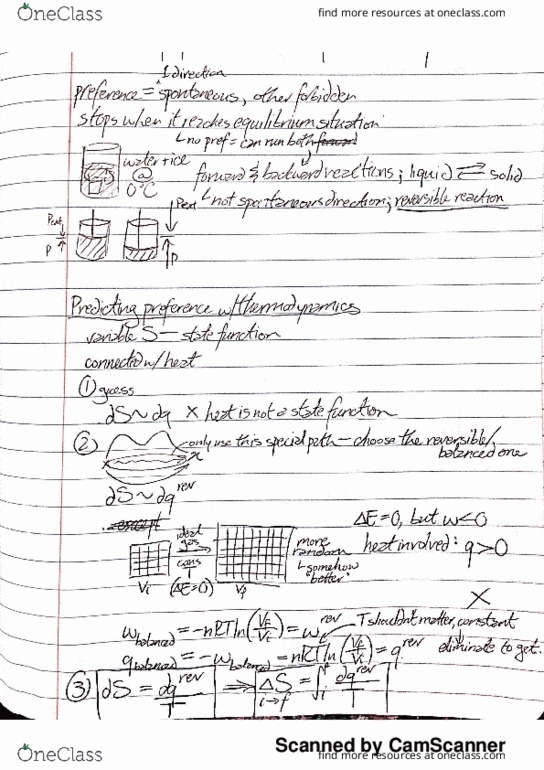 OneClass
find more resources at oneclass.com
1 direction
preference = spontaneous, other forbidden
stops when it reaches equilibrium situation
no pref = can run both forward
water + ice
@
0°C
forward & backward reactions; liquid ⇌ solid
Pext
not spontaneous direction; reversible reaction
Pext
P
P
Predicting preference w/ thermodynamics
variable S — state function
connected w/ heat
① guess
dS ~ dq X heat is not a state function
② only use this special path — choose the reversible/
balanced one
dS ~ dq rev
ΔE = 0, but w < 0
ideal
gas
cons
T
(ΔE = 0)
more
random
somehow
"better"
heat involved: q > 0
Vi
Vf
X
w balanced = -nRT ln(Vf/Vi) = w rev
T shouldn't matter, constant
q balanced = -w balanced = nRT ln(Vf/Vi) = q rev
eliminate to get.
③ dS = dq rev / T ⇒ ΔS i→f = ∫ i f dq rev / T
Scanned by CamScanner
OneClass
find more resources at oneclass.com